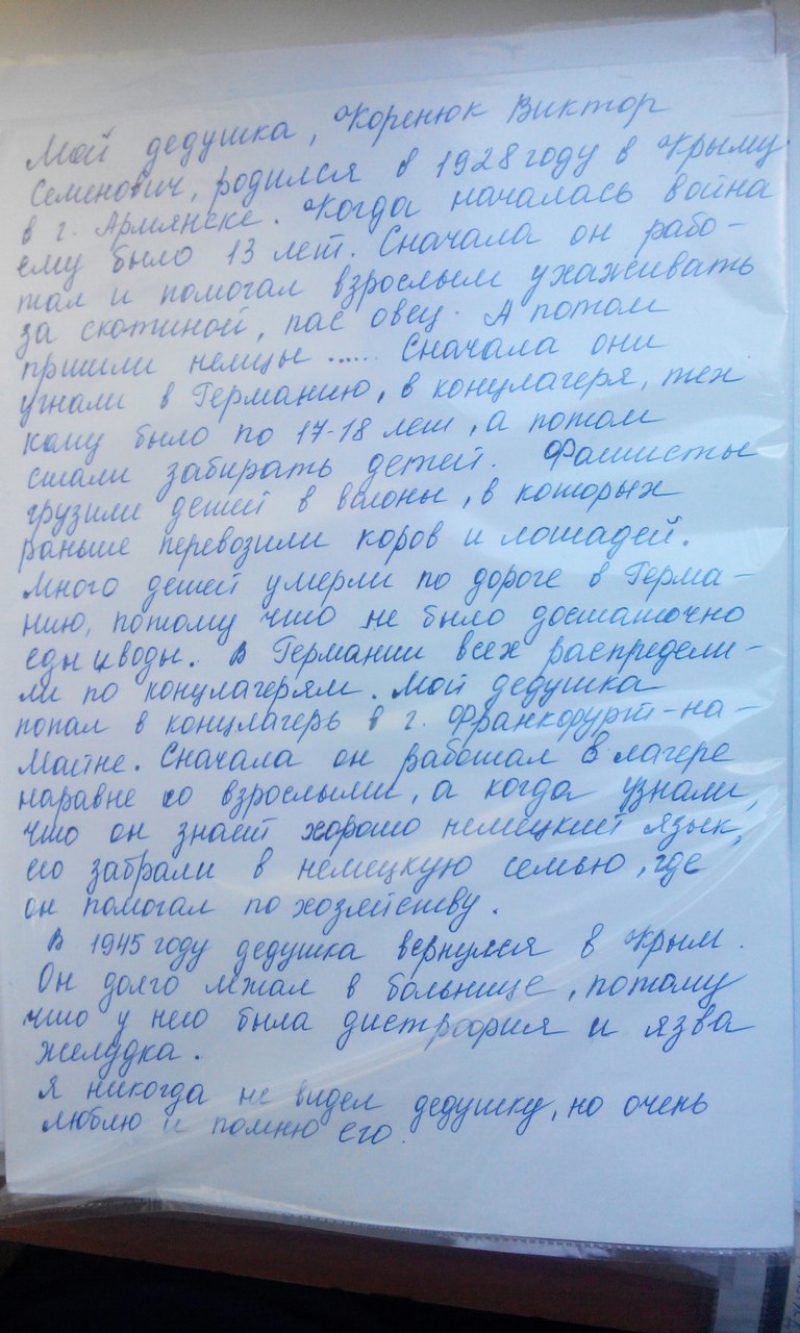 Мой дедушка, Коренюк Виктор
Семенович, родился в 1928 году в Крыму
в г. Армянске. Когда началась война
ему было 13 лет. Сначала он рабо-
тал и помогал взрослым ухаживать
за скотиной, пас овец. А потом
пришли немцы ...... Сначала они
угнали в Германию, в концлагеря, тех
кому было по 17-18 лет, а потом
стали забирать детей. Фашисты
грузили детей в вагоны, в которых
раньше перевозили коров и лошадей.
Много детей умерли по дороге в Герма-
нию, потому что не было достаточно
еды и воды. В Германии всех распредели-
ли по концлагерям. Мой дедушка
попал в концлагерь в г. Франкфурт-на-
Майне. Сначала он работал в лагере
наравне со взрослыми, а когда узнали,
что он знает хорошо немецкий язык,
его забрали в немецкую семью, где
он помогал по хозяйству.
В 1945 году дедушка вернулся в Крым.
Он долго лежал в больнице, потому
что у него была дистрофия и язва
желудка.
Я никогда не видел дедушку, но очень
люблю и помню его.